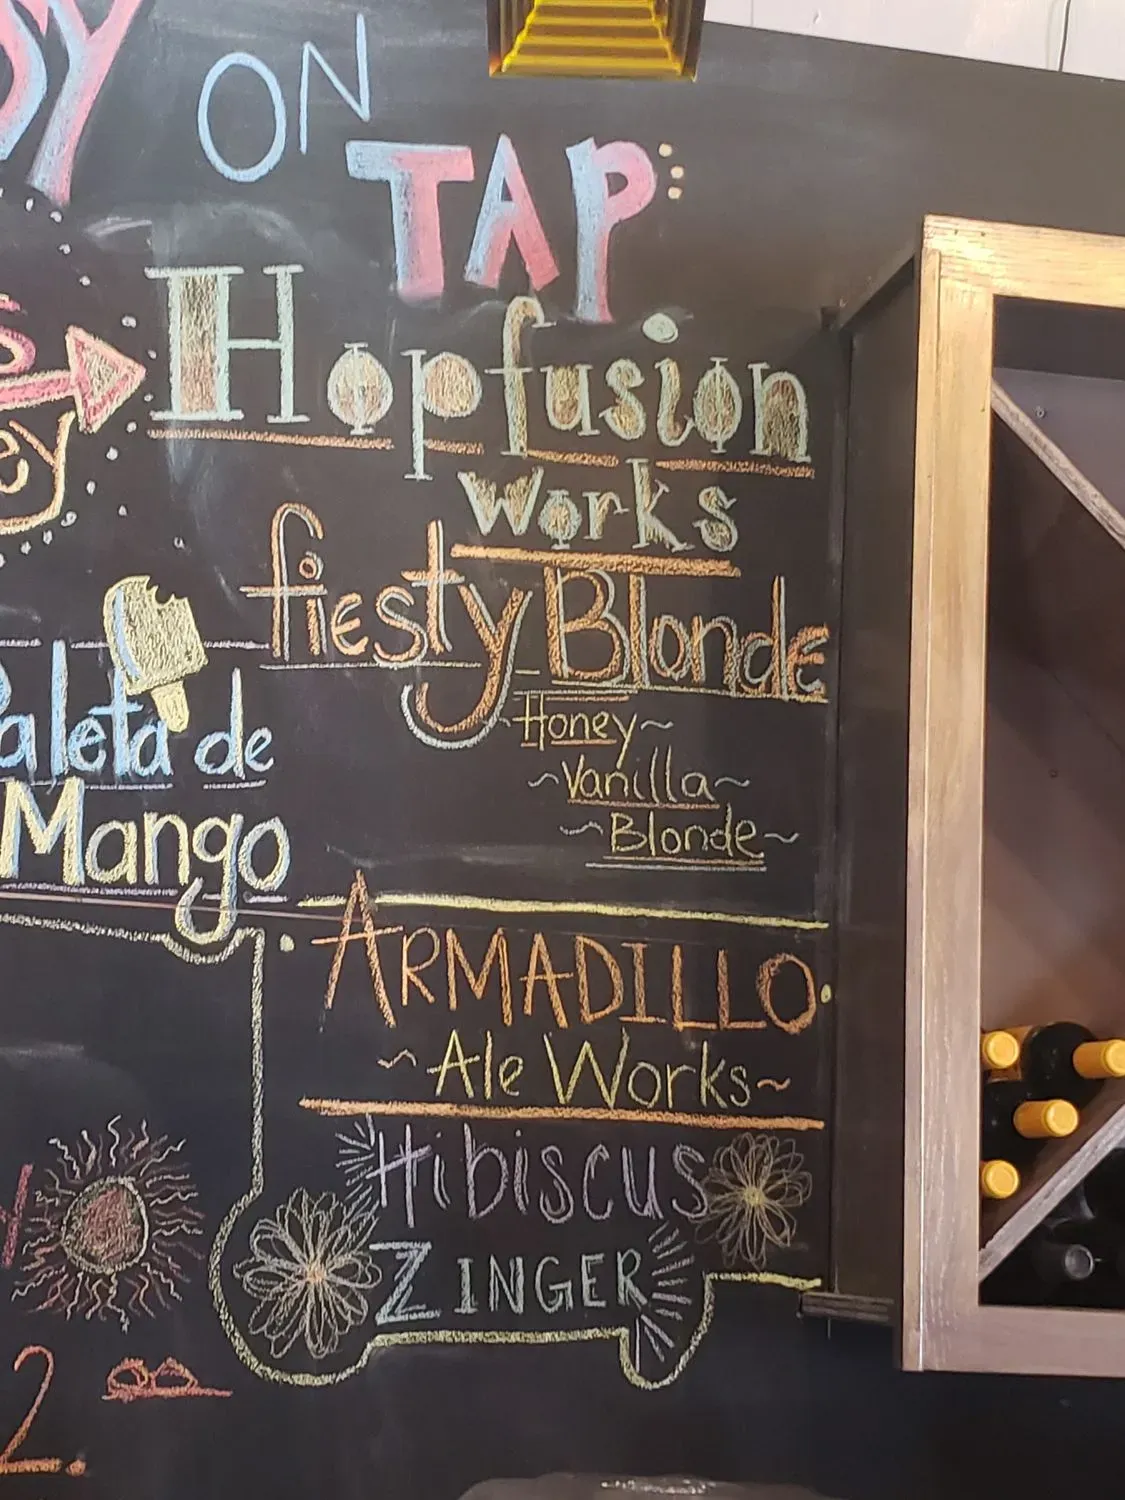 ON
TAP:
Hopfusion
Works
fiesty Blonde
~Honey~
~Vanilla~
~Blonde~
Paleta de
Mango
ARMADILLO
~Ale Works~
Hibiscus
ZINGER
2.